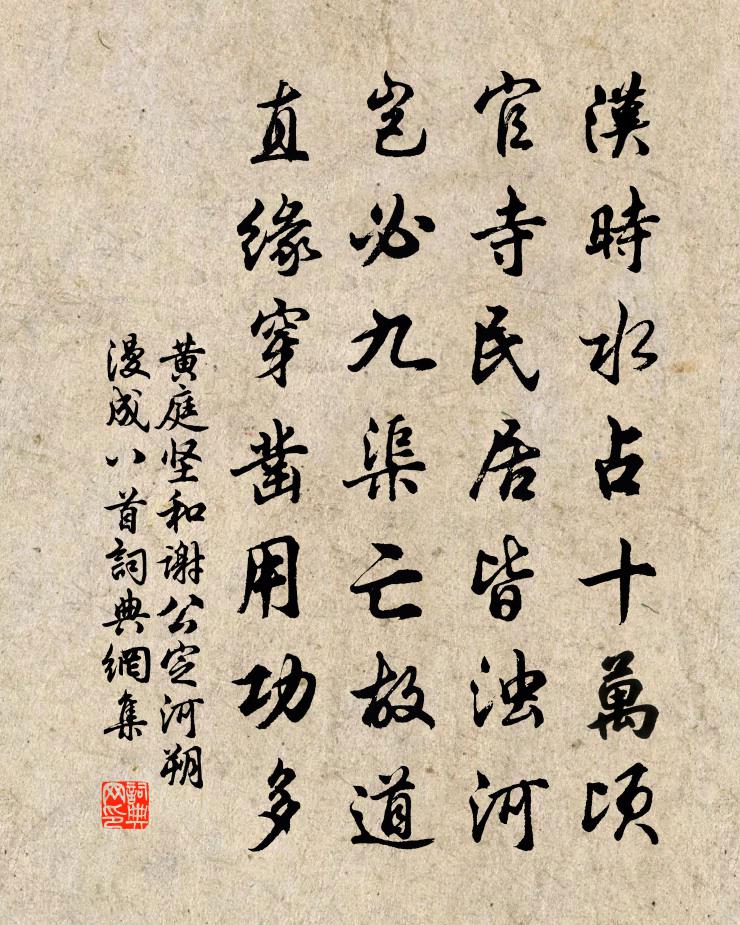 漢時水占十萬頃
官寺民居皆浊河
豈必九渠亡故道
直緣穿凿用功多
黄庭坚和谢公定河朔
漫成八首詞典網集
詞典网印